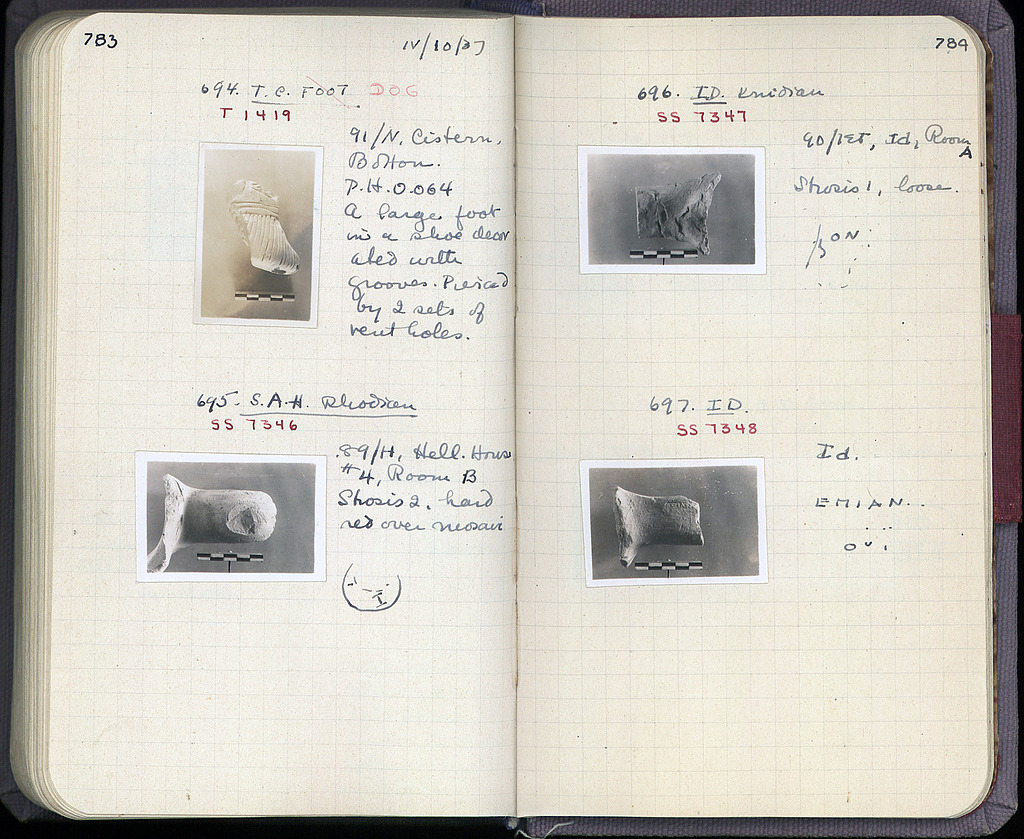 783
IV/10/37
694. T.C. FOOT DOG
T 1419
91/N, Cistern,
Botton.
P.H. 0.064
A large foot
in a shoe decor
ated with
grooves. Pierced
by 2 sets of
vent holes.
695. S.A.H. Rhodian
SS 7346
89/H, Hell. House
#4, Room B
Strosis 2, hard
red over mosaic
784
696. ID. Knidian
SS 7347
90/ΙΣΤ, Id, Room
A
Strosis 1, loose.
ON
697. ID.
SS 7348
Id.
EMIAN..